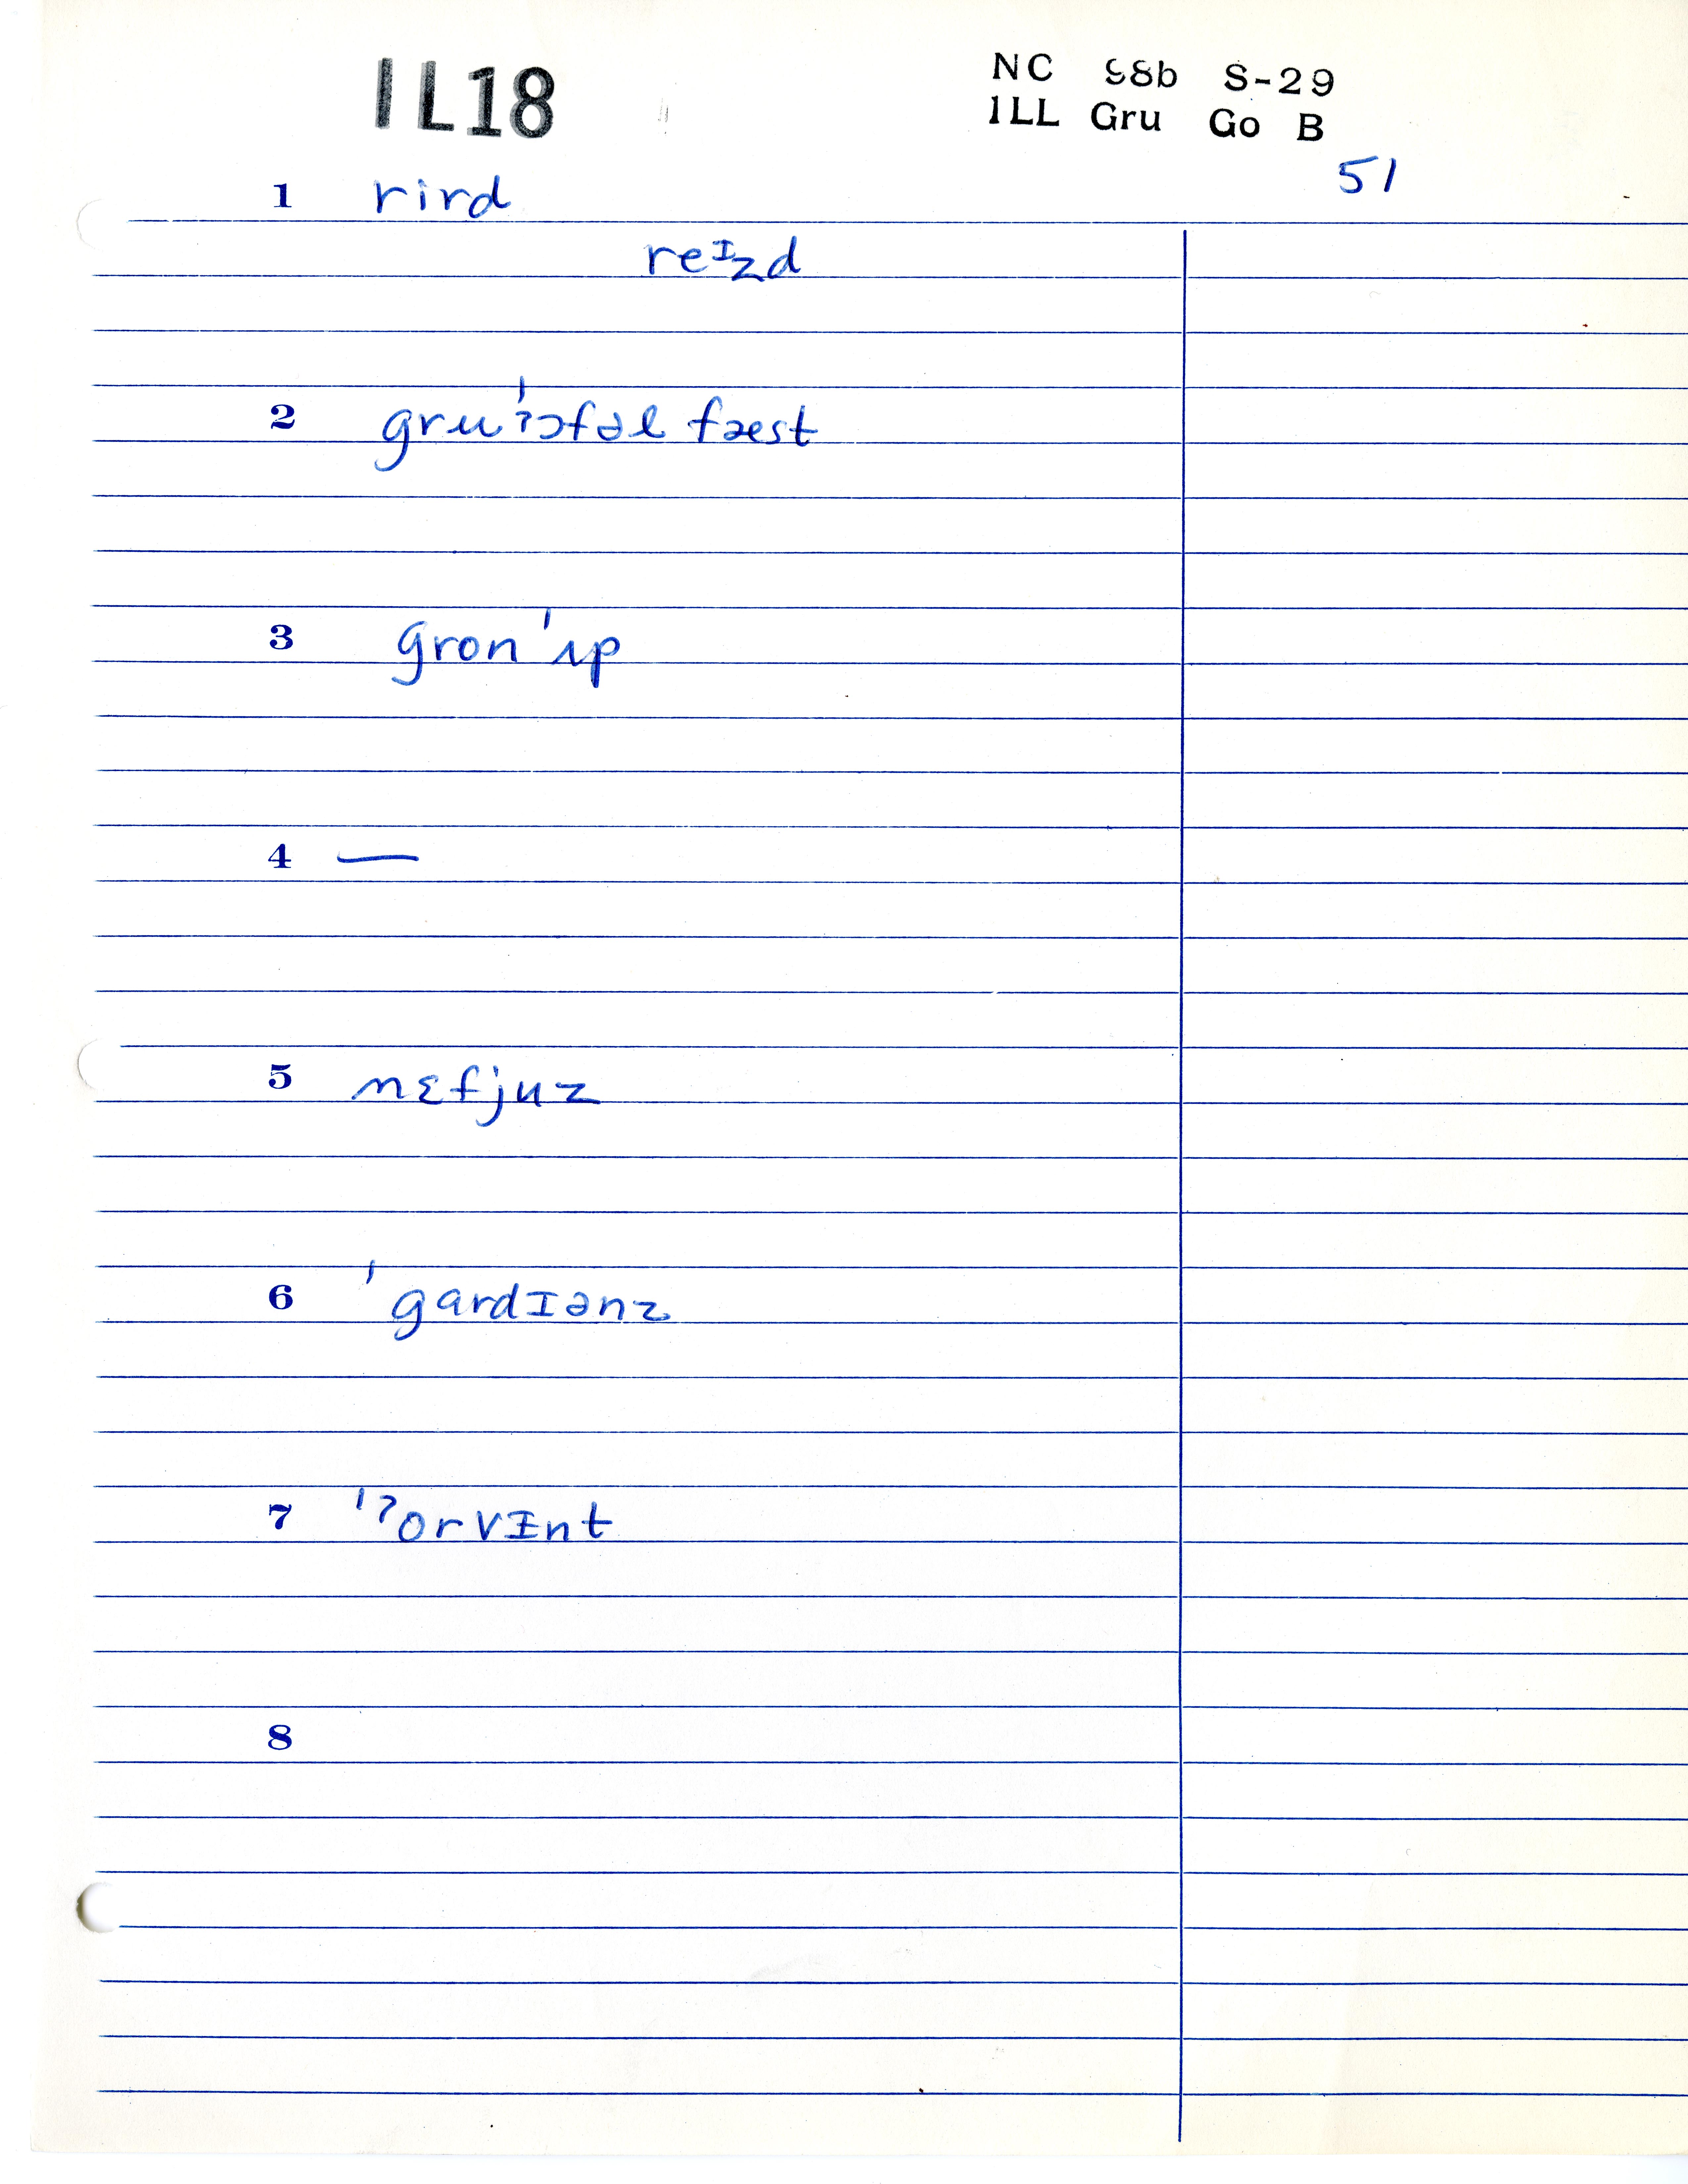 IL18
NC 98b S-29
ILL Gru Go B
51
1 rird
reᴵzd
2 gru'ʔɔfəl fæst
3 gron 'ʌp
4 —
5 nɛfjuz
6 'gardɪənz
7 'ʔorvɪnt
8